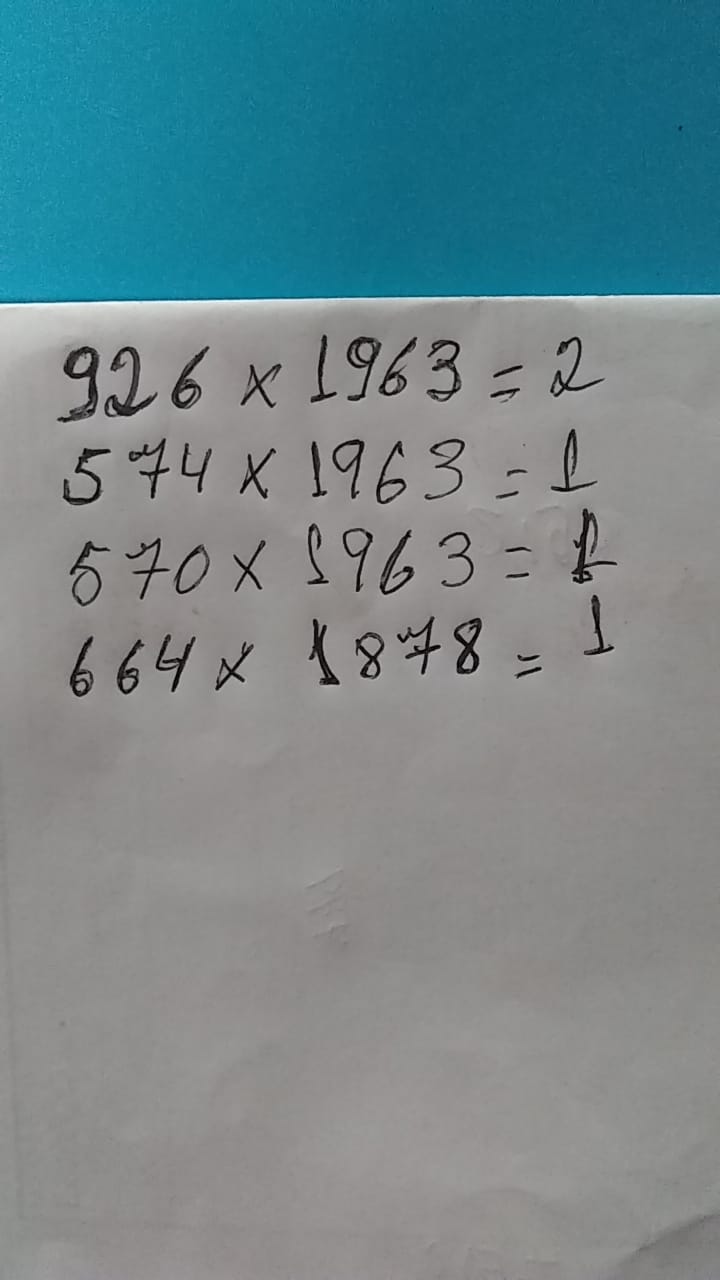 926 x 1963 = 2
574 x 1963 = 1
570 x 1963 = 1
664 x 1878 = 1